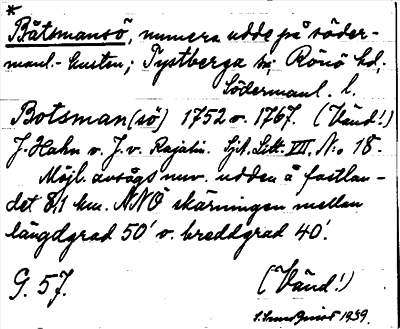 *
Båtsmansö, numera udde på söder-
manl.-kusten; Tystberga sn, Rönö hd,
Södermanl. l.
Botsman(sö) 1752 o. 1767. (Vänd!)
J. Hahn o. J. v. Rajalin. Sjk. Litt. VII, N:o 18.
Möjl. avsågs nuv. udden å fastlan-
det 8,1 km. NNÖ skärningen mellan
längdgrad 50' o. breddgrad 40'.
G. 57.
(Vänd!)
1939.